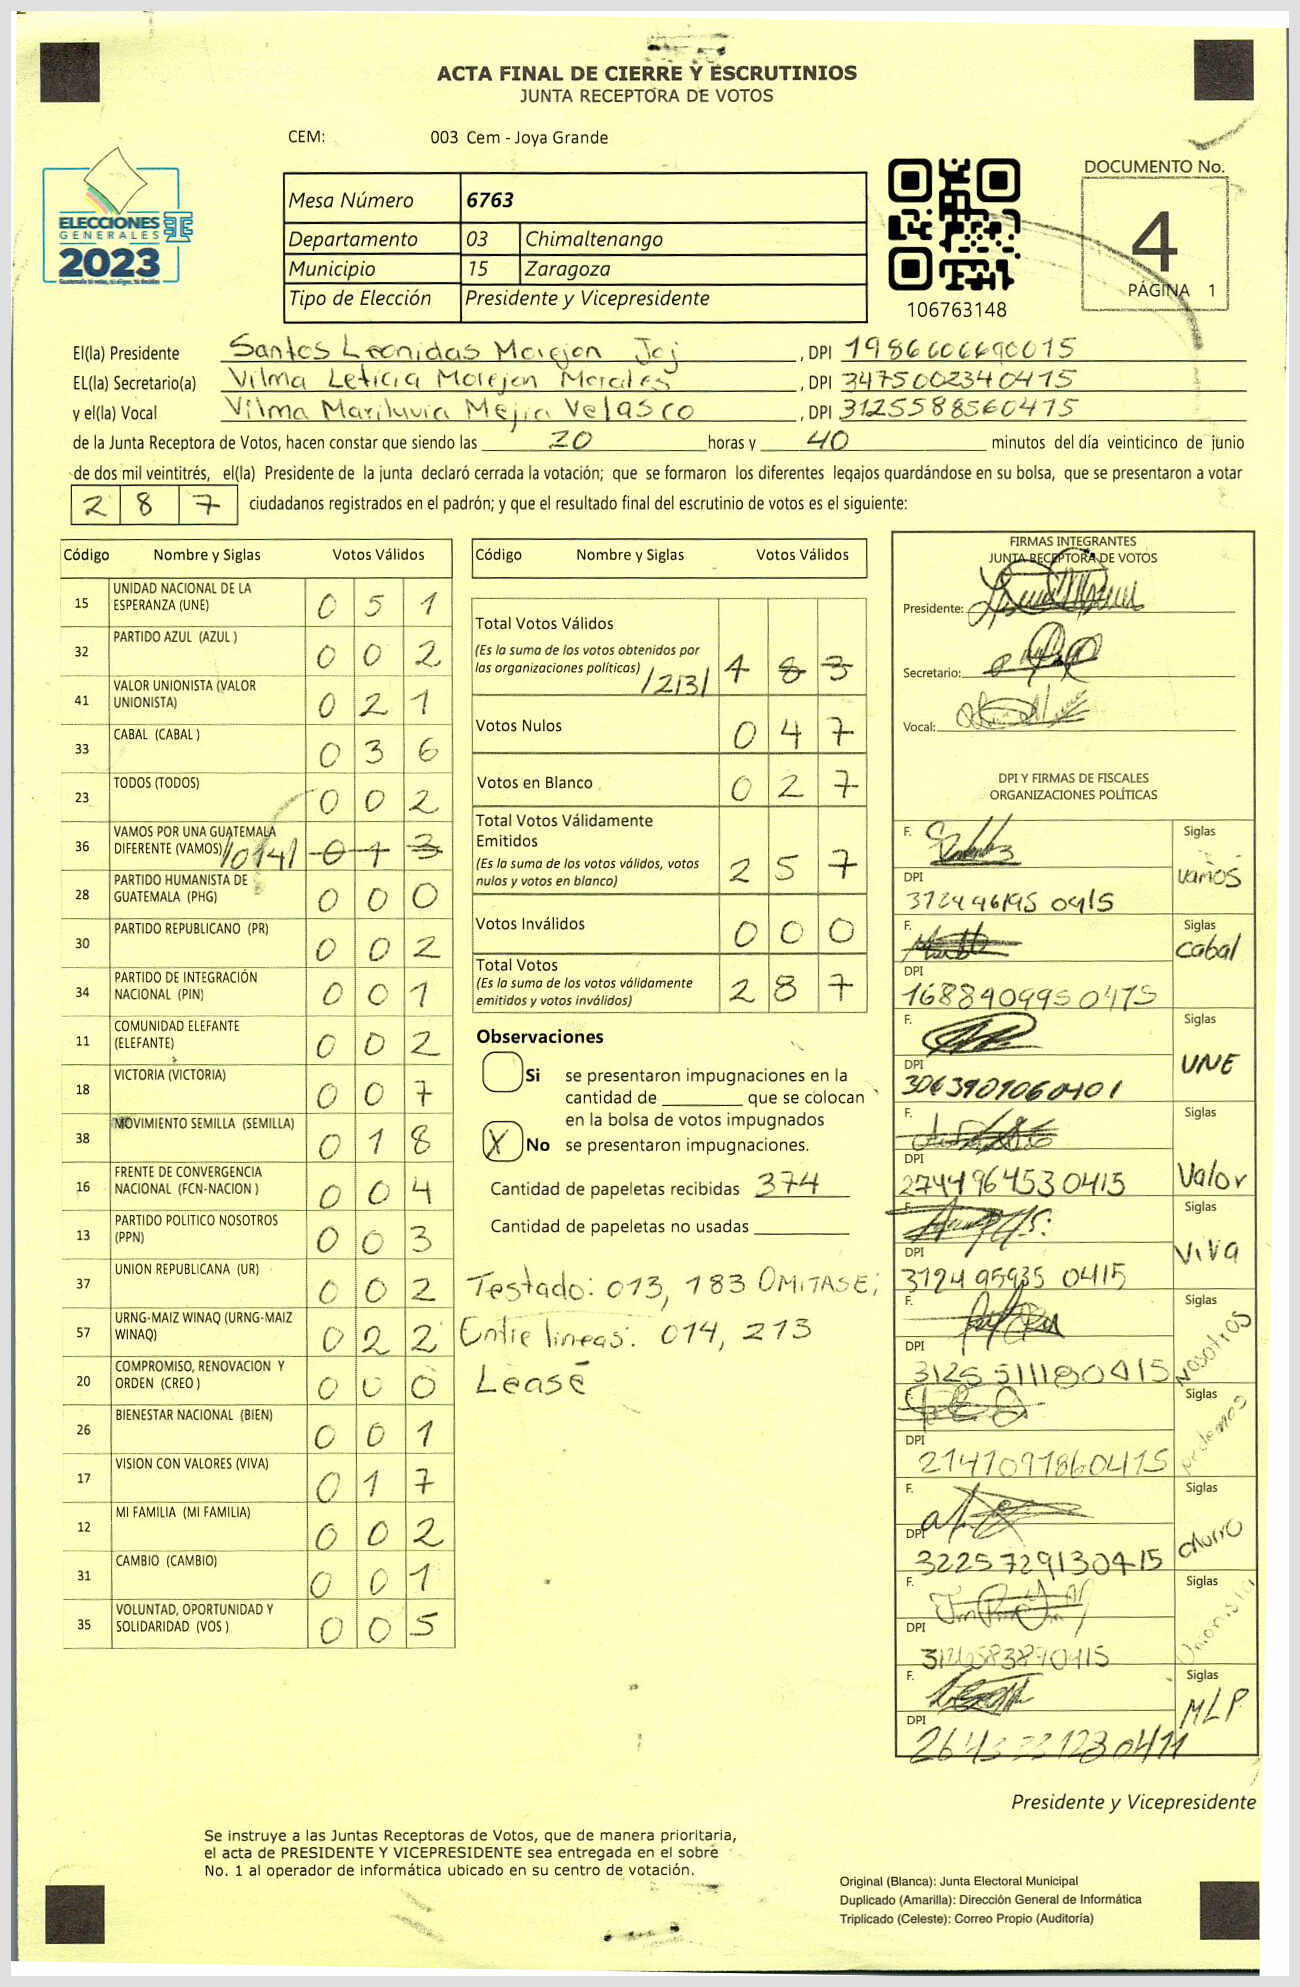 ACTA FINAL DE CIERRE Y ESCRUTINIOS
JUNTA RECEPTORA DE VOTOS
CEM: 003 Cem - Joya Grande
ELECCIONES
GENERALES
2023
Mesa Número 6763
Departamento 03 Chimaltenango
Municipio 15 Zaragoza
Tipo de Elección Presidente y Vicepresidente
106763148
DOCUMENTO No.
4
PÁGINA 1
El(la) Presidente Santos Leonidas Morejon Joj, DPI 1986606690015
EL(la) Secretario(a) Vilma Leticia Morejon Morales, DPI 3475002340415
y el(la) Vocal Vilma Mariluvia Mejia Velasco, DPI 3125588560415
de la Junta Receptora de Votos, hacen constar que siendo las 20 horas y 40 minutos del día veinticinco de junio
de dos mil veintitrés, el(la) Presidente de la junta declaró cerrada la votación; que se formaron los diferentes legajos quardándose en su bolsa, que se presentaron a votar
2 8 7 ciudadanos registrados en el padrón; y que el resultado final del escrutinio de votos es el siguiente:
Código Nombre y Siglas Votos Válidos
15 UNIDAD NACIONAL DE LA ESPERANZA (UNE) 0 5 1
32 PARTIDO AZUL (AZUL ) 0 0 2
41 VALOR UNIONISTA (VALOR UNIONISTA) 0 2 1
33 CABAL (CABAL ) 0 3 6
23 TODOS (TODOS) 0 0 2
36 VAMOS POR UNA GUATEMALA DIFERENTE (VAMOS) /014/ 0 1 3
28 PARTIDO HUMANISTA DE GUATEMALA (PHG) 0 0 0
30 PARTIDO REPUBLICANO (PR) 0 0 2
34 PARTIDO DE INTEGRACIÓN NACIONAL (PIN) 0 0 1
11 COMUNIDAD ELEFANTE (ELEFANTE) 0 0 2
18 VICTORIA (VICTORIA) 0 0 7
38 MOVIMIENTO SEMILLA (SEMILLA) 0 1 8
16 FRENTE DE CONVERGENCIA NACIONAL (FCN-NACION ) 0 0 4
13 PARTIDO POLITICO NOSOTROS (PPN) 0 0 3
37 UNION REPUBLICANA (UR) 0 0 2
57 URNG-MAIZ WINAQ (URNG-MAIZ WINAQ) 0 2 2
20 COMPROMISO, RENOVACION Y ORDEN (CREO ) 0 0 0
26 BIENESTAR NACIONAL (BIEN) 0 0 1
17 VISION CON VALORES (VIVA) 0 1 7
12 MI FAMILIA (MI FAMILIA) 0 0 2
31 CAMBIO (CAMBIO) 0 0 1
35 VOLUNTAD, OPORTUNIDAD Y SOLIDARIDAD (VOS ) 0 0 5
Código Nombre y Siglas Votos Válidos
Total Votos Válidos
(Es la suma de los votos obtenidos por
las organizaciones políticas) /213/ 1 8 3
Votos Nulos 0 4 7
Votos en Blanco 0 2 7
Total Votos Válidamente
Emitidos
(Es la suma de los votos válidos, votos
nulos y votos en blanco) 2 8 7
Votos Inválidos 0 0 0
Total Votos
(Es la suma de los votos válidamente
emitidos y votos inválidos) 2 8 7
Observaciones
Si se presentaron impugnaciones en la
cantidad de ________ que se colocan
en la bolsa de votos impugnados
X No se presentaron impugnaciones.
Cantidad de papeletas recibidas 374
Cantidad de papeletas no usadas
Testado: 013, 183 OMITASE;
Entre lineas: 014, 213
Leasé
FIRMAS INTEGRANTES
JUNTA RECEPTORA DE VOTOS
Presidente:
Secretario:
Vocal:
DPI Y FIRMAS DE FISCALES
ORGANIZACIONES POLÍTICAS
F. Siglas
DPI vamos
3124461950415
F. Siglas
DPI Cabal
1688909950415
F. Siglas
DPI UNE
3063909060401
F. Siglas
DPI Valor
2744964530415
F. Siglas
DPI VIVA
3124959350415
F. Siglas
DPI NOSOTROS
3125511180415
F. Siglas
DPI podemos
2141091860415
F. Siglas
DPI
3225729130415
F. Siglas
DPI Unionista
F. Siglas
DPI MLP
Presidente y Vicepresidente
Se instruye a las Juntas Receptoras de Votos, que de manera prioritaria,
el acta de PRESIDENTE Y VICEPRESIDENTE sea entregada en el sobre
No. 1 al operador de informática ubicado en su centro de votación.
Original (Blanca): Junta Electoral Municipal
Duplicado (Amarilla): Dirección General de Informática
Triplicado (Celeste): Correo Propio (Auditoría)